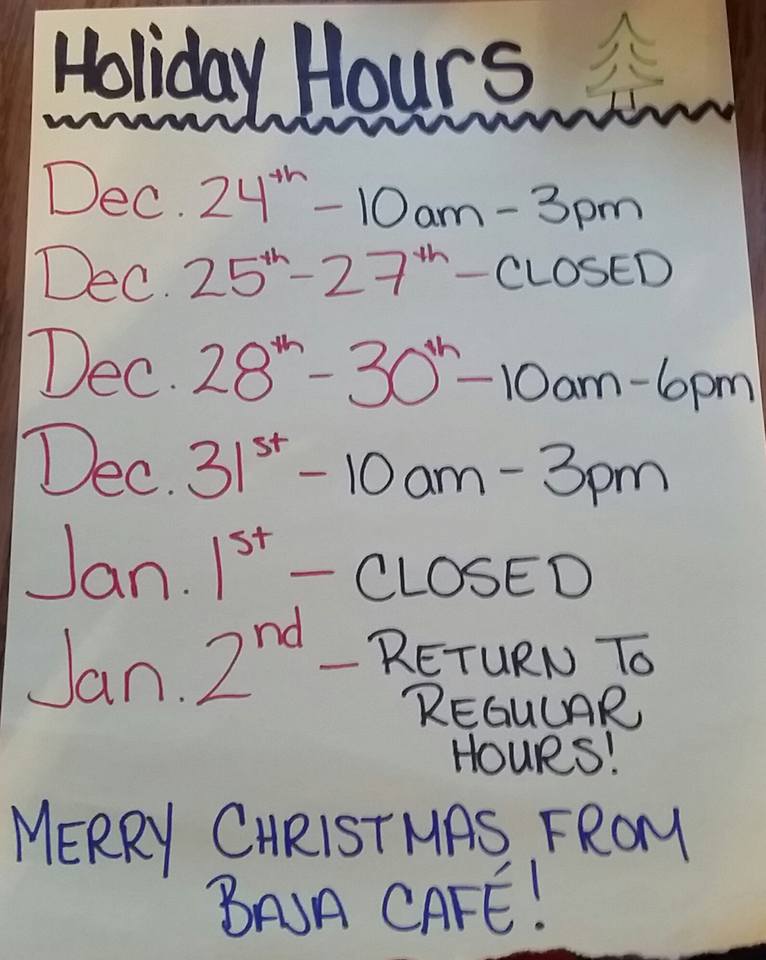 Holiday Hours
Dec. 24th - 10am - 3pm
Dec. 25th - 27th - CLOSED
Dec. 28th - 30th - 10am - 6pm
Dec. 31st - 10am - 3pm
Jan. 1st - CLOSED
Jan. 2nd - RETURN TO
REGULAR
HOURS!
MERRY CHRISTMAS FROM
BAJA CAFÉ!